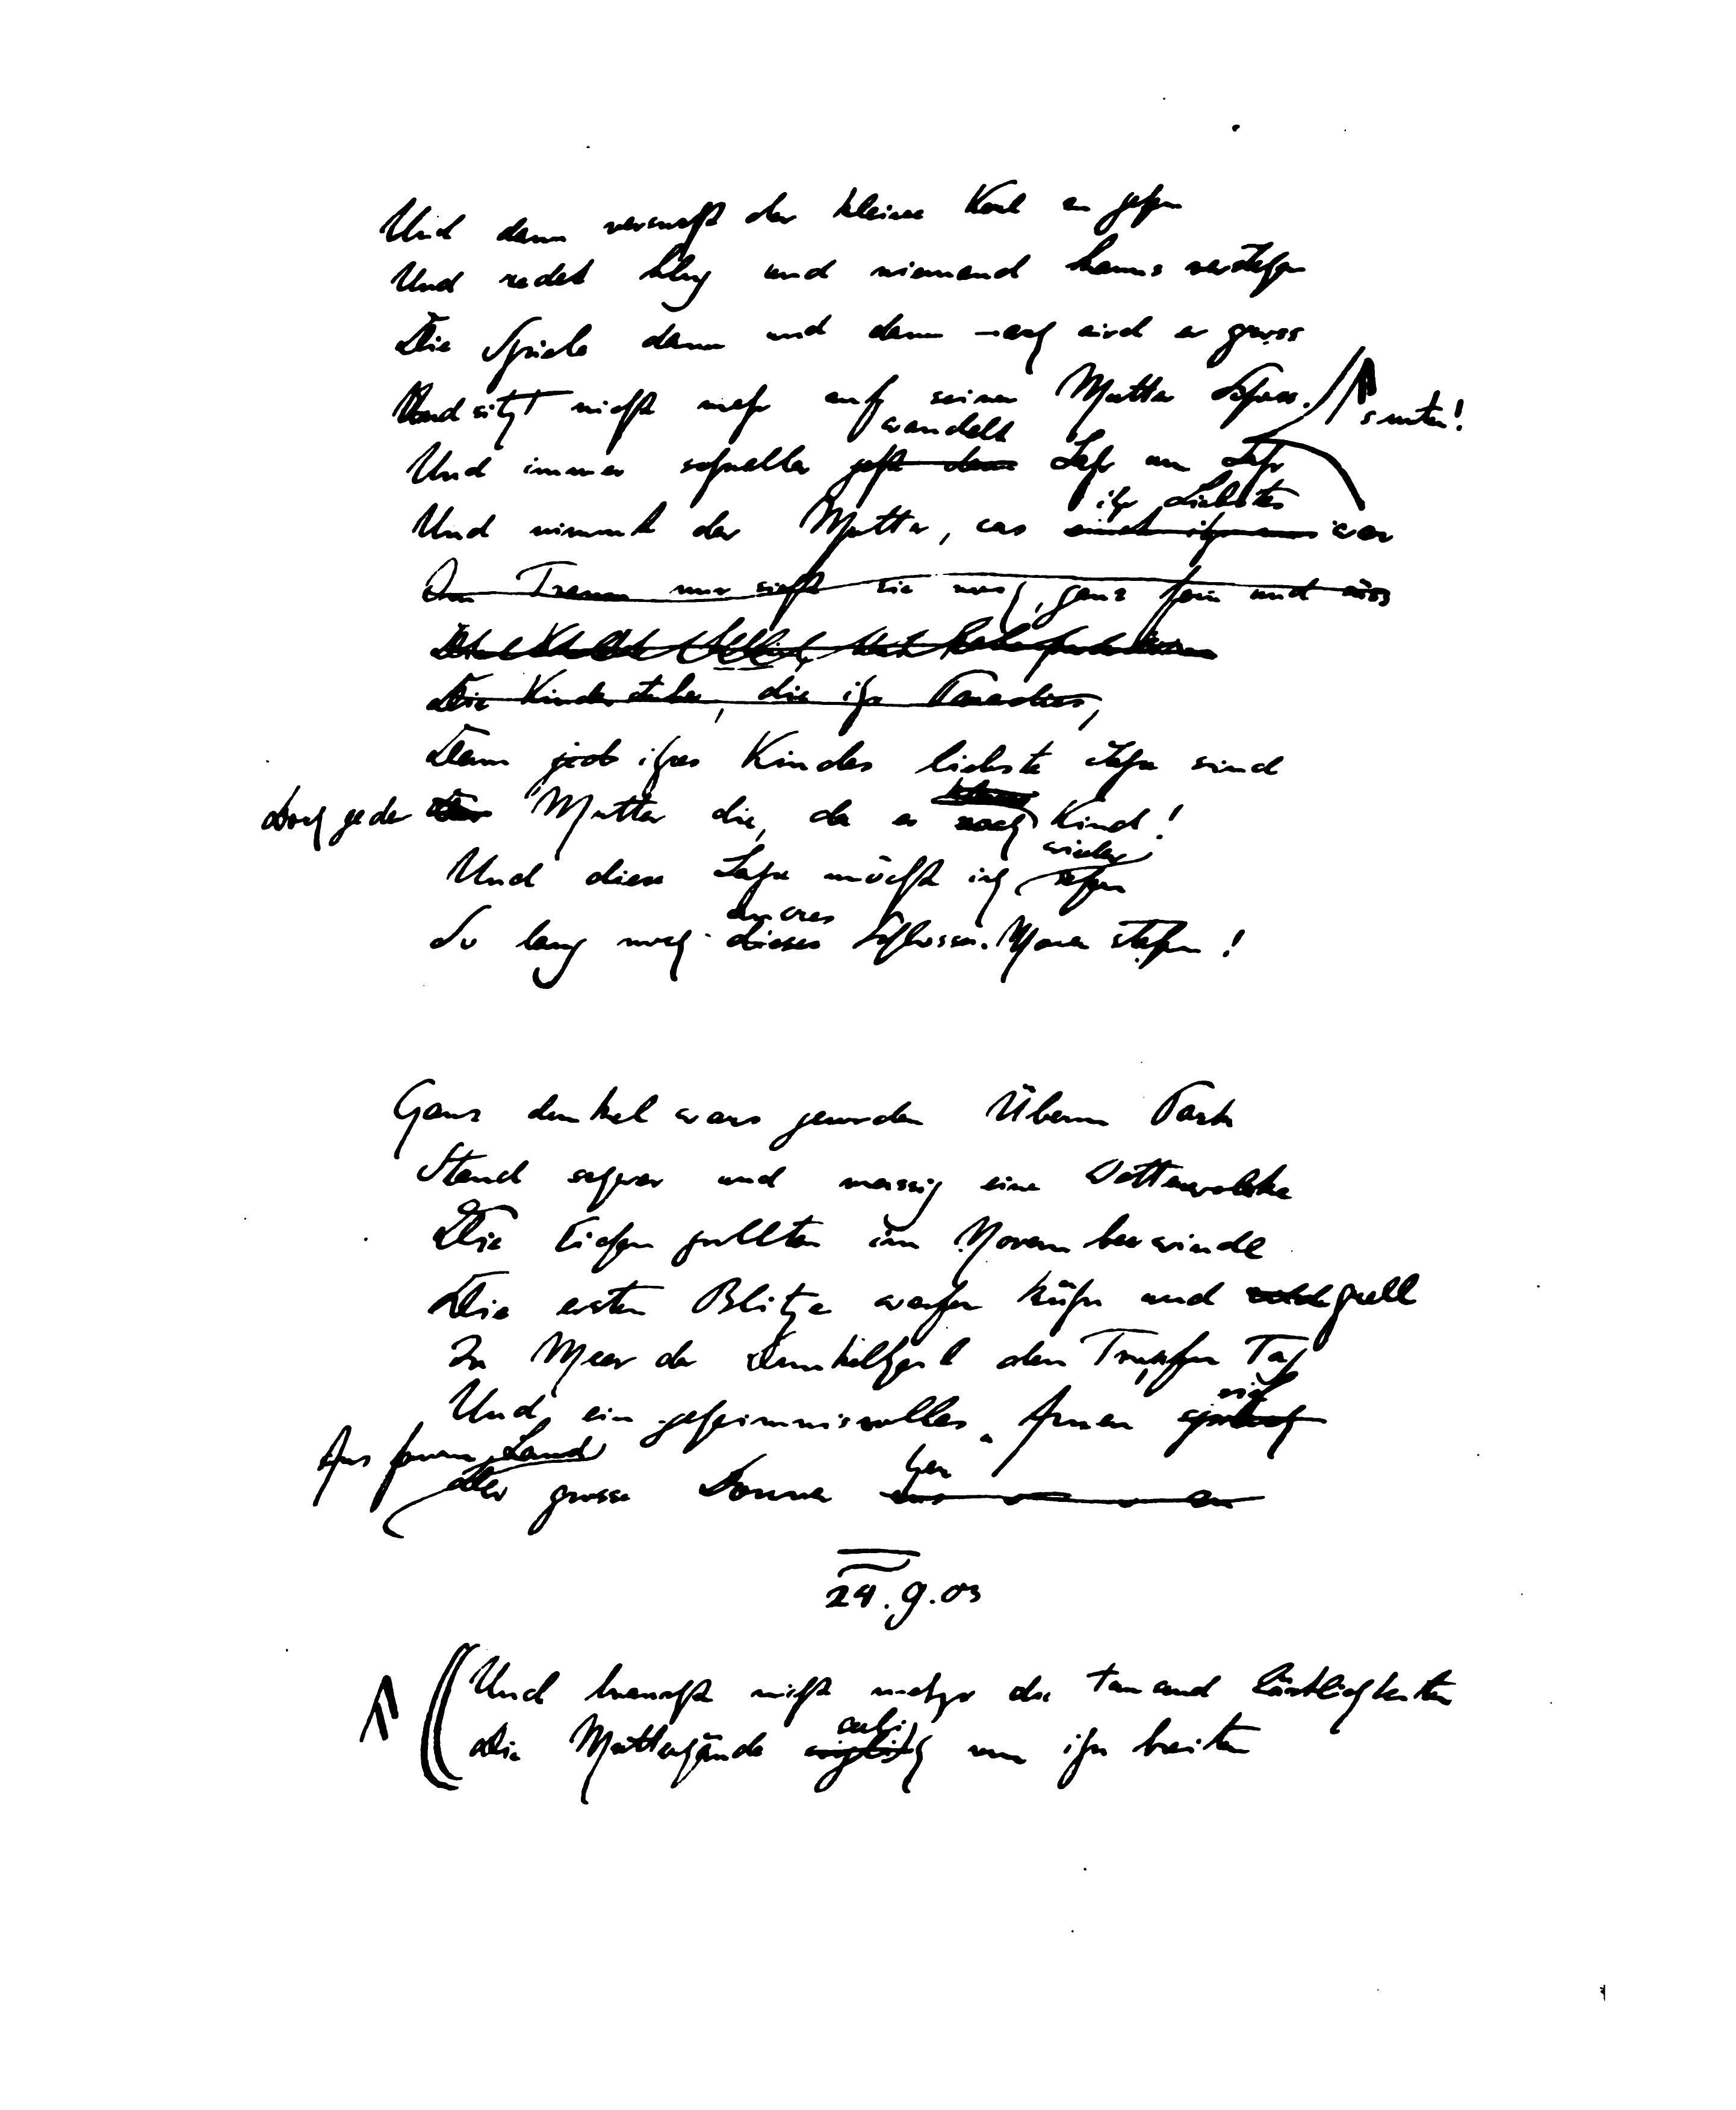 Und dann versucht der kleine Kerl zu gehen
Und redet klug und niemand kanns verstehn
Die Spiele dann und dann – ach wird er gross
Und sitzt nicht mehr auf seiner Mutter Schoss. s unten!
wandelt
Und immer schneller geht dann Jahr um Jahr
ihr Liebstes
Und nimmt der Mutter, was war
Im Traum nur sieht sie noch, ganz fein und süss
Die Kinderstube, die ihr Paradies,
Denn jed ihres Kindes liebste Jahre sind
Doch jeder Der Mutter die, da er noch Kind!
wieder
Und diese Jahre möcht ich sehen
unsres
So lang noch dieses Schlosses Mauern stehen!
Ganz dunkel wars geworden Überm Park
Stand schwer und massig eine Wetterwolke
Die Eichen grollten im Novemberwinde
Die ersten Blitze warfen kühn und grell
Ins Meer der Dunkelheit den Tropfen Tag
Und ein geheimnisvolles
Aus fernem Land
Der grosse Donner her
24.9.03
Und braucht nicht mehr die tausend Zärtlichkeiten
selig
die Mutterhände um ihn breiten